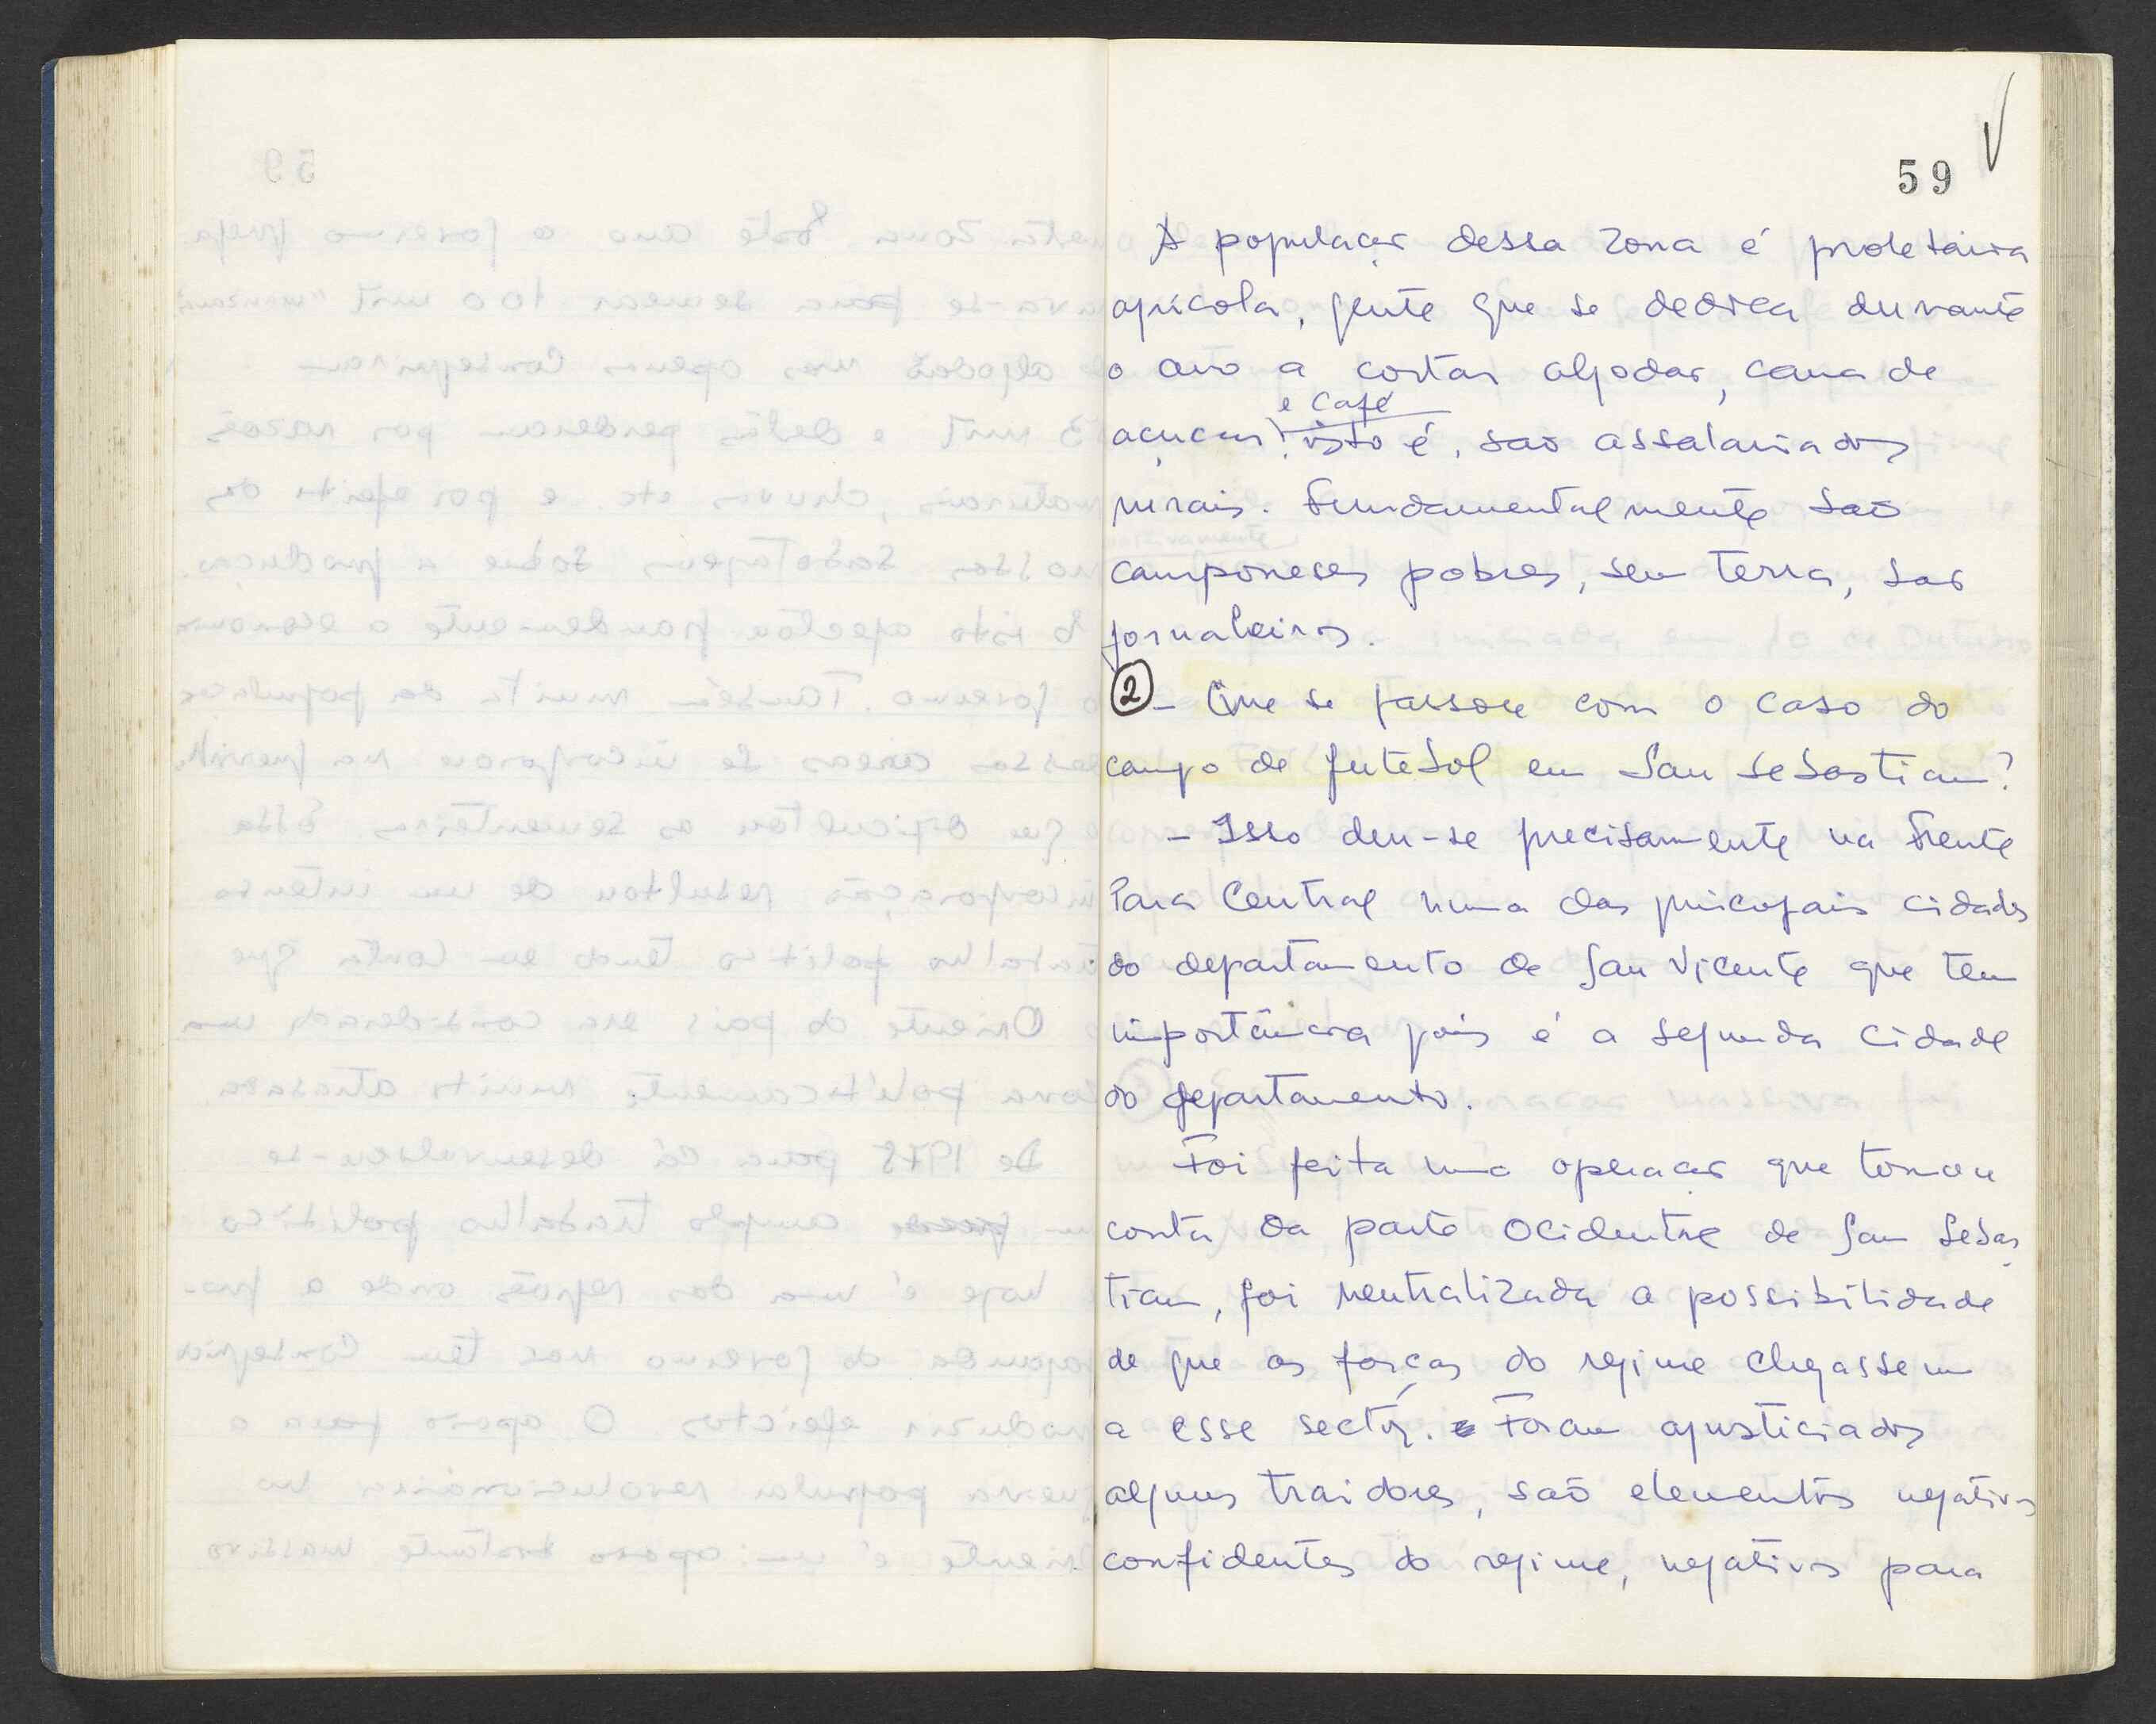 59
A populaçao dessa zona é proletária
agricola, gente que se dedica durante
o ano a cortar algodao, cana de
açucar e café isto é, sao assalariados
rurais. Fundamentalmente sao
camponeses pobres, sem terra, sao
jornaleiros.
2 - Que se passou com o caso do
campo de futebol em San Sebastian?
- Isso deu-se precisamente na Frente
Para Central numa das principais cidades
do departamento de San Vicente que tem
importância pois é a segunda cidade
do departamento.
Foi feita uma operaçao que tomou
conta da parte Ocidental de San Sebas
tian, foi neutralizada a possibilidade
de que as forças do regime chegassem
a esse sector. Foram ajusticiados
alguns traidores, sao elementos negativos
confidentes do regime, negativos para